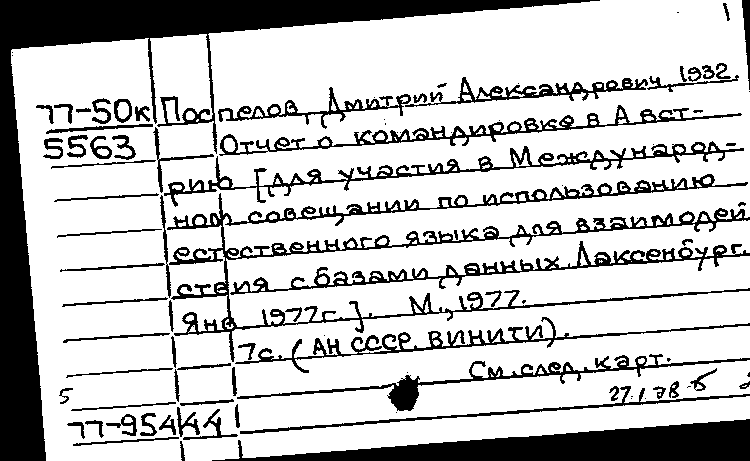 1
77-50к Поспелов, Дмитрий Александрович, 1932.
5563 Отчет о командировке в Авст-
рию [для участия в Международ-
ном совещании по использованию
естественного языка для взаимодей
ствия с базами данных. Лаксенбург.
Янв 1977г.]. М., 1977.
7с. (АН СССР. ВИНИТИ).
См. след. карт.
5
27.1.78 Б
77-95444